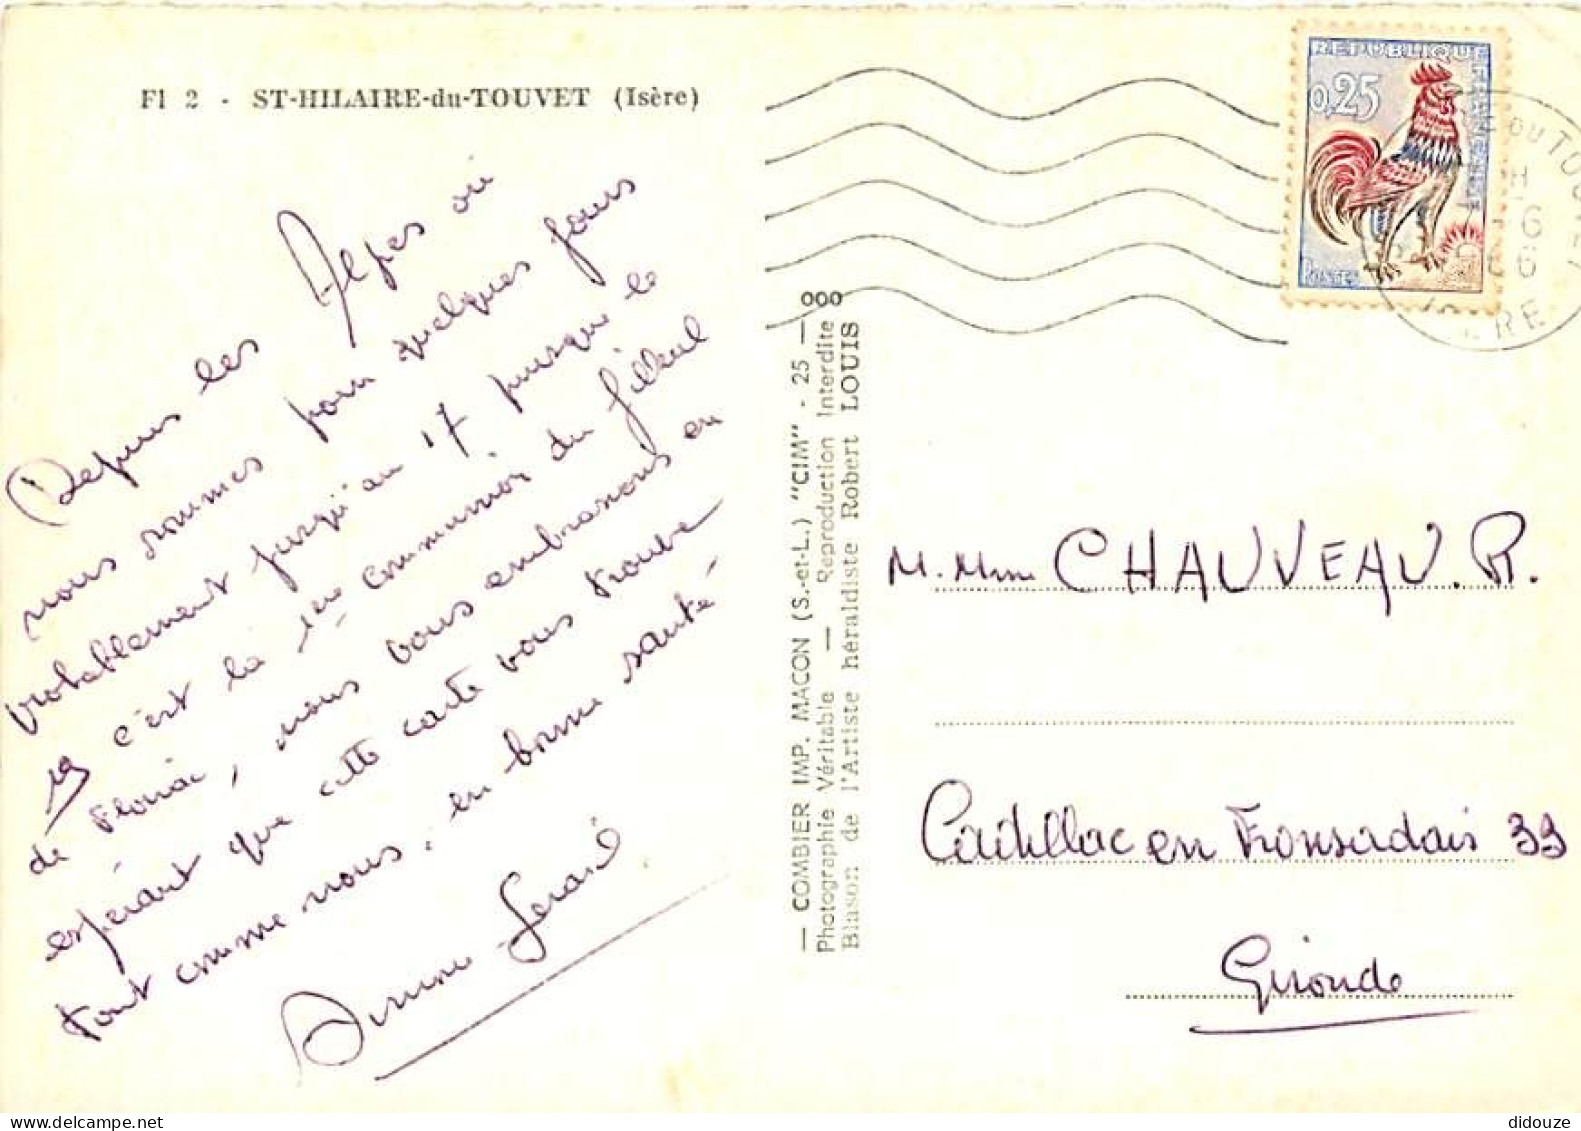 Fl 2 - ST-HILAIRE-du-TOUVET (Isère)
Depuis les Alpes où
nous sommes pour quelques jours
probablement jusqu'au 17 puisque le
19 c'est la 1ère communion du filleul
de Floirac, nous vous embrassons en
espérant que cette carte vous trouve
tout comme nous, en bonne santé.
Gérard
— COMBIER IMP. MACON (S.-et-L.) "CIM" - 25 — 000
Photographie Véritable — Reproduction Interdite
Blason de l'Artiste héraldiste Robert LOUIS
REPUBLIQUE FRANÇAISE
0,25
POSTES
DU TOUVET
H
6
ISERE
M. Mme CHAUVEAU. R.
Cadillac en Fronsadais 33
Gironde
didouze